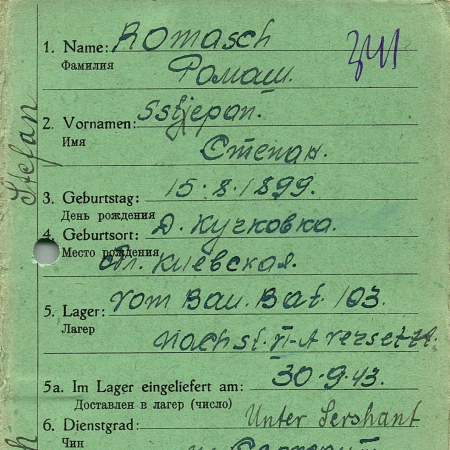 1. Name: Romasch
Фамилия
Ромаш.
341
2. Vornamen: Sstjepan.
Имя
Степан.
Stefan
3. Geburtstag: 15.8.1899.
День рождения
4. Geburtsort: Д. Кучковка.
Место рождения
Киевская.
5. Lager: vom Bau. Bat 103
Лагер
nach St. VI-A versetzt.
5a. Im Lager eingeliefert am: 30.9.43.
Доставлен в лагер (число)
6. Dienstgrad: Unter Sershant
Чин